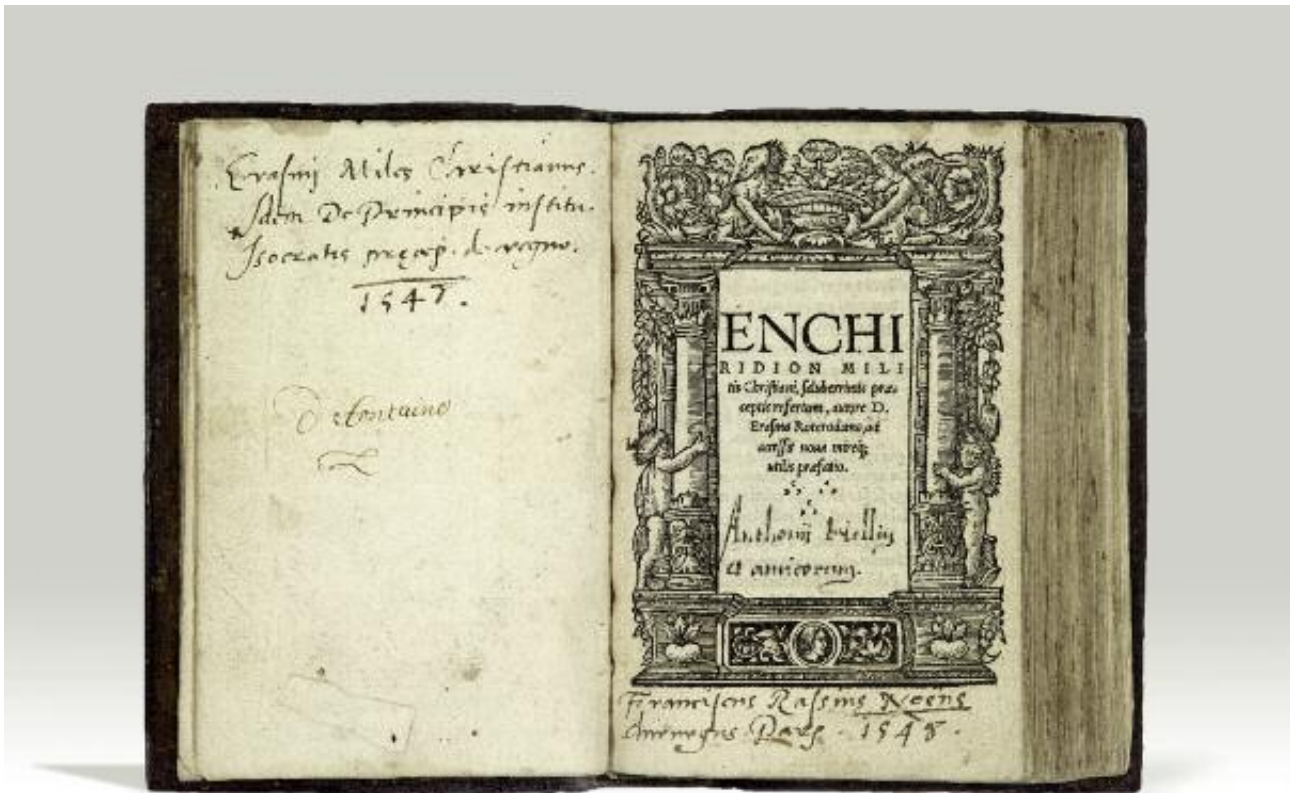 Erasmi Miles Christianus.
Idem De Principis institu.
Isocratis præcep. de regno.
1548.
Defontaine
ENCHI
RIDION MILI
tis Christiani, saluberrimis præ-
ceptis refertum, autore D.
Erasmo Roterodamo, ad
accessit noua mireq;
utilis præfatio.
Anthonii
et amicorum.
Franciscus Rassius Noëns
Chirurgus Paris. 1548.